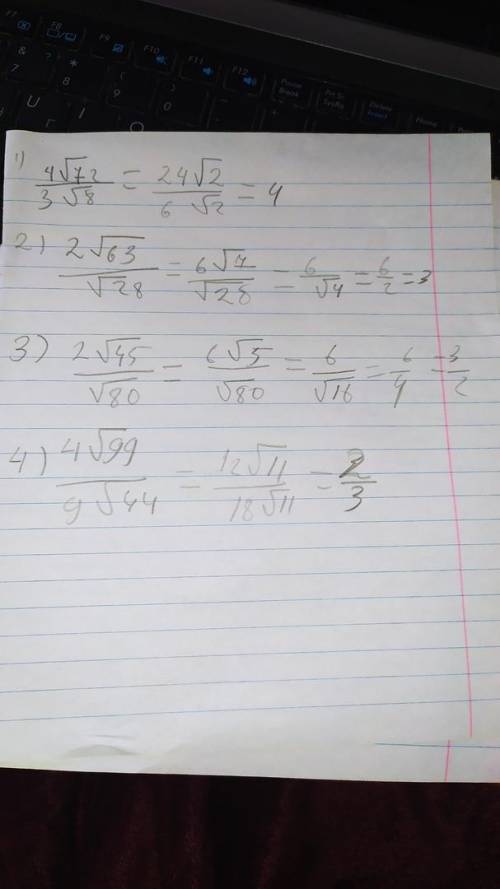 F7 F8 F9 F10 F11 F12 Pause Break Prt Sc SysRq Delete Insert
& 7 ? * 8 ( 9 ) 0
U Г I O
1) 4√72/3√8 = 24√2/6√2 = 4
2) 2√63/√28 = 6√7/√28 = 6/√4 = 6/2 = 3
3) 2√45/√80 = 6√5/√80 = 6/√16 = 6/4 = 3/2
4) 4√99/9√44 = 12√11/18√11 = 2/3